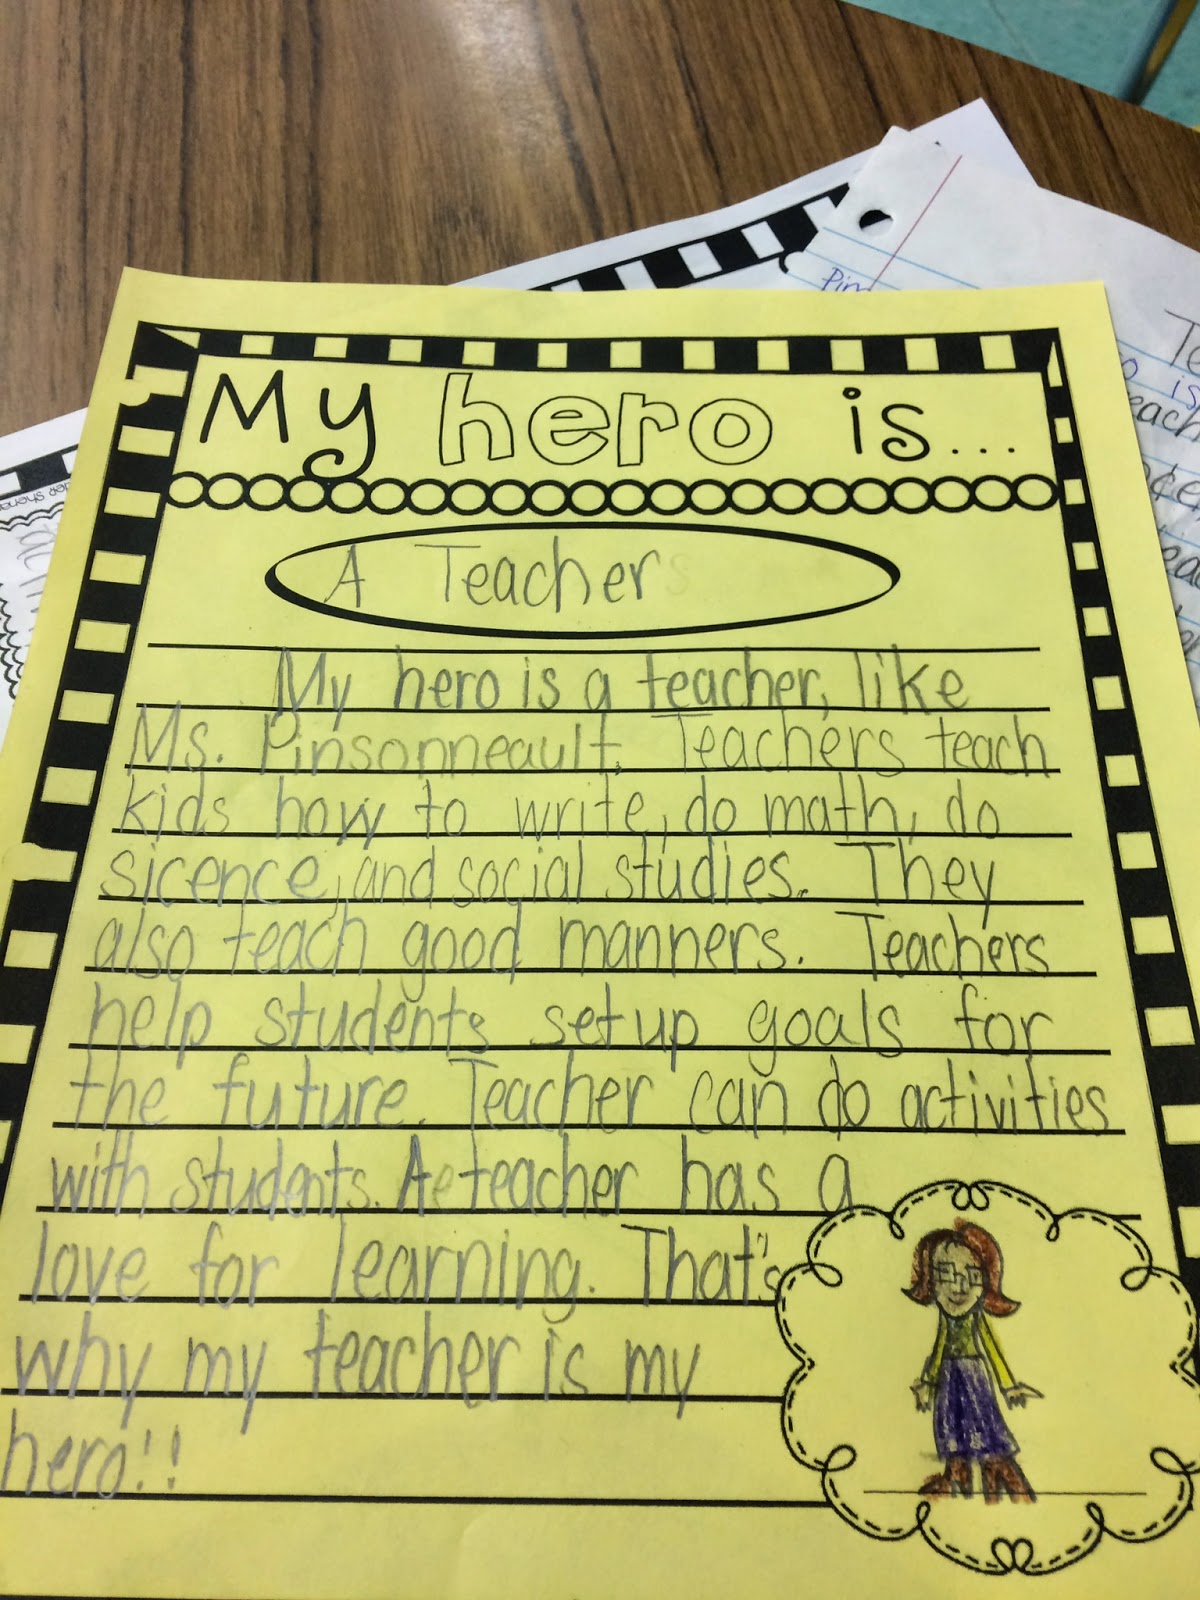 My hero is...
A Teacher
My hero is a teacher, like
Ms. Pinsonneault. Teachers teach
kids how to write, do math, do
sicence, and social studies. They
also teach good manners. Teachers
help students set up goals for
the future. Teacher can do activities
with students. A teacher has a
love for learning. That's
why my teacher is my
hero!!